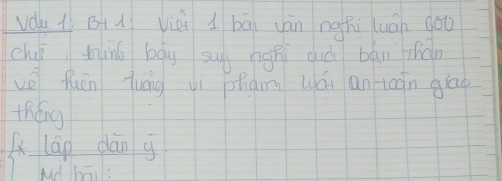 Vdụ 1: BT 1: Viết 1 bài văn nghị luận 600
chữ trình bày suy nghĩ của bản thân
về hiện tượng vi phạm luật an-toàn giao
thông
* lập dàn ý
Mở bài: